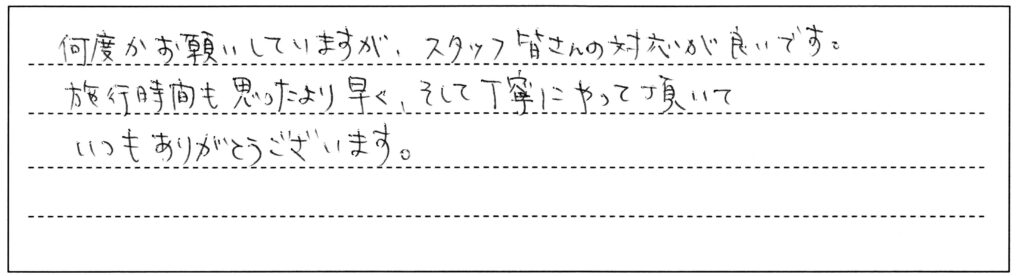 何度かお願いしていますが、スタッフ皆さんの対応が良いです。
施行時間も思ったより早く、そして丁寧にやって頂いて
いつもありがとうございます。